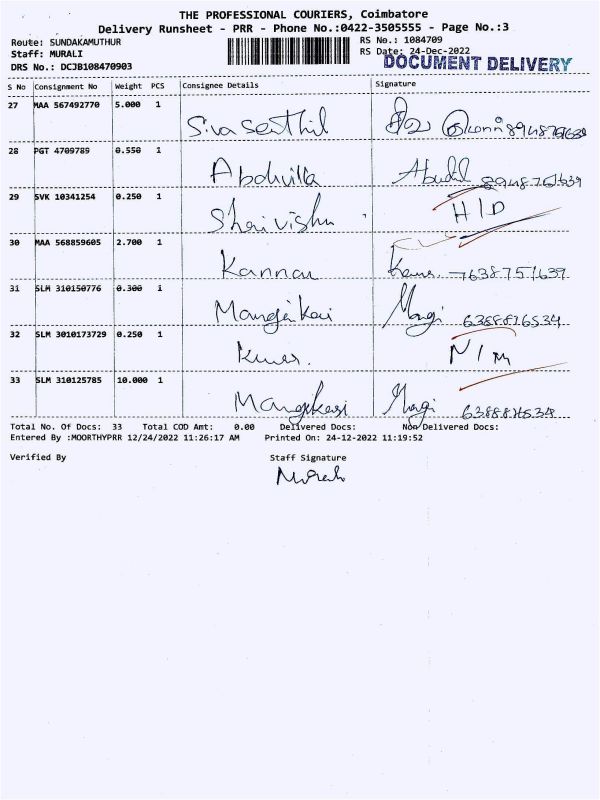 THE PROFESSIONAL COURIERS, Coimbatore
Delivery Runsheet - PRR - Phone No.:0422-3505555 - Page No.:3
Route: SUNDAKAMUTHUR RS No.: 1084709
Staff: MURALI RS Date: 24-Dec-2022
DRS No.: DCJB108470903 DOCUMENT DELIVERY
S No Consignment No Weight PCS Consignee Details Signature
27 MAA 567492770 5.000 1
Siva Senthil சிவ
28 PGT 4709789 0.550 1
Abdhulla 8948761639
29 SVK 10341254 0.250 1
Shri vishnu H/D
30 MAA 568859605 2.700 1
Kannan 7638751639
31 SLM 310150776 0.300 1
6388876534
32 SLM 3010173729 0.250 1
N/m
33 SLM 310125785 10.000 1
Total No. Of Docs: 33 Total COD Amt: 0.00 Delivered Docs: Non Delivered Docs:
Entered By :MOORTHYPRR 12/24/2022 11:26:17 AM Printed On: 24-12-2022 11:19:52
Verified By Staff Signature